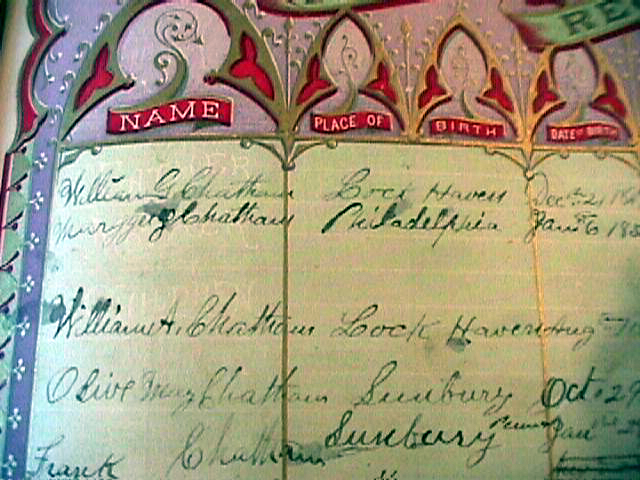 RE
NAME PLACE OF BIRTH DATE OF BIRTH
William G Chatham Lock Haven Dec 21
Mary Chatham Philadelphia Jan 6 18
William A. Chatham Lock Haven Aug
Olive May Chatham Sunbury Oct. 2
Frank Chatham Sunbury Jan